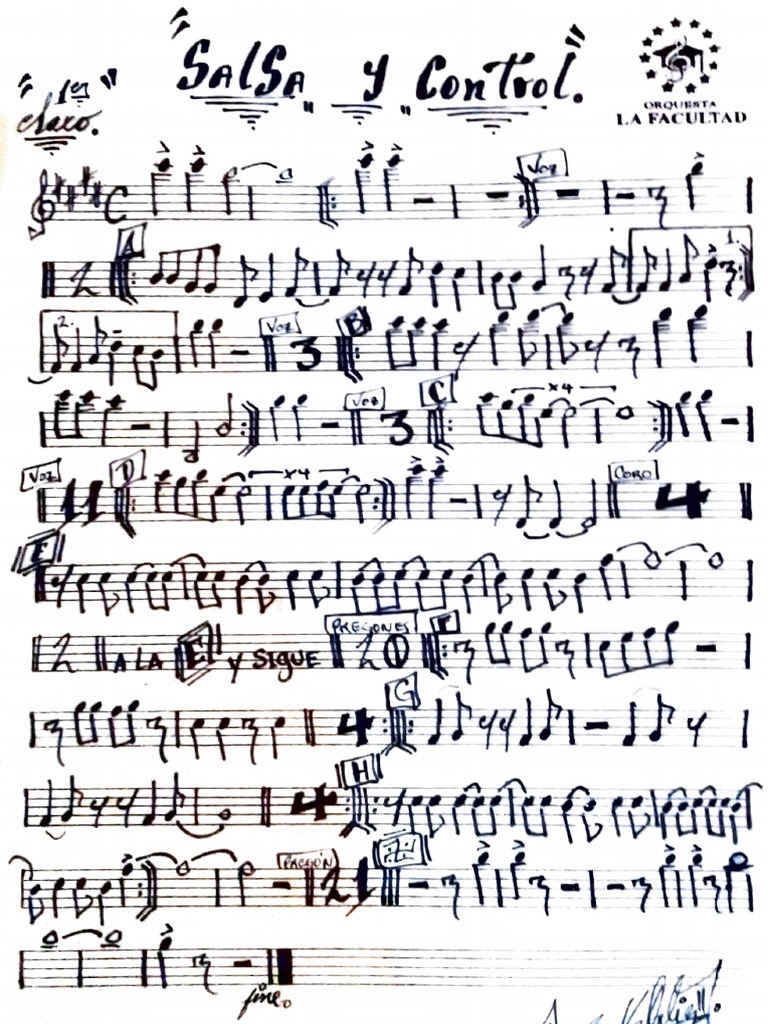 "Salsa y Control."
"1er"
Saxo.
ORQUESTA
LA FACULTAD
Voz
A
2
1.
2.
Voz
3
B
Voz
3
C
x4
Voz
11
D
x4
CORO
4
E
2
A LA E y SIGUE
PREGONES
20
F
4
G
4
H
PREGÓN
21
fine.